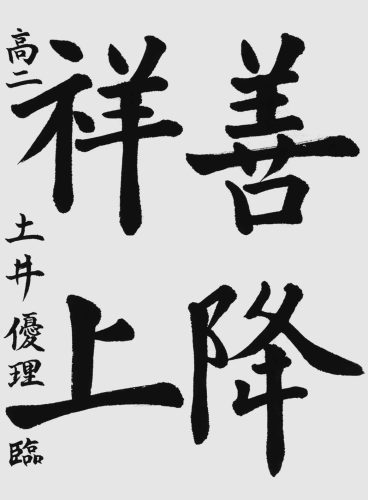 善降
祥上
高二 土井優理臨